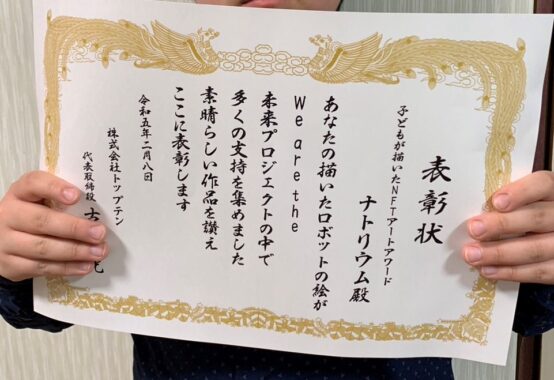 表彰状
子どもが描いたNFTアートアワード
ナトリウム殿
あなたの描いたロボットの絵が
We are the
未来プロジェクトの中で
多くの支持を集めました
素晴らしい作品を讃え
ここに表彰します
令和五年二月八日
株式会社トップテン
代表取締役